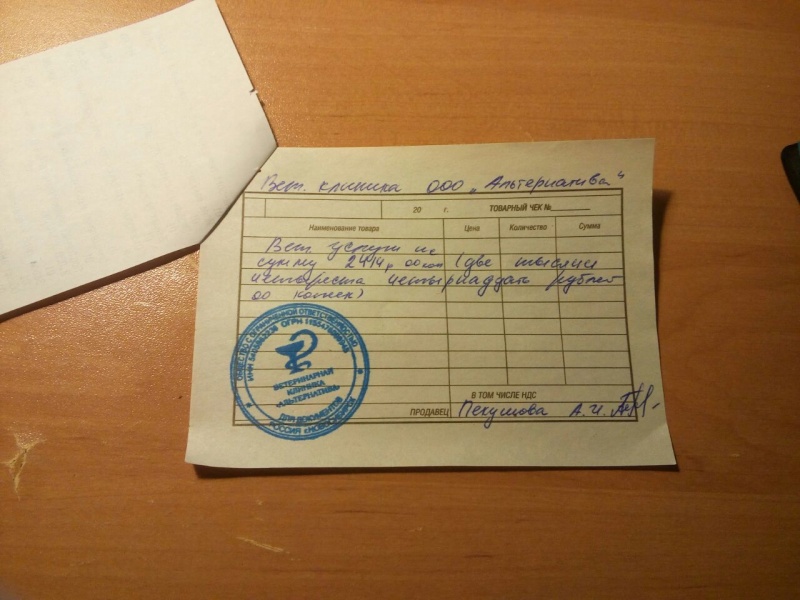 Вет. клиника ООО „Альтернатива“
20 г. ТОВАРНЫЙ ЧЕК №
Наименование товара Цена Количество Сумма
Вет. услуги на
сумму 2414р 00 коп (две тысячи
четыреста четырнадцать рублей
00 копеек)
ОБЩЕСТВО С ОГРАНИЧЕННОЙ ОТВЕТСТВЕННОСТЬЮ
ИНН ОГРН
ВЕТЕРИНАРНАЯ
КЛИНИКА
«АЛЬТЕРНАТИВА»
ДЛЯ ДОКУМЕНТОВ
РОССИЯ г.НОВОСИБИРСК
В ТОМ ЧИСЛЕ НДС
ПРОДАВЕЦ А.И.